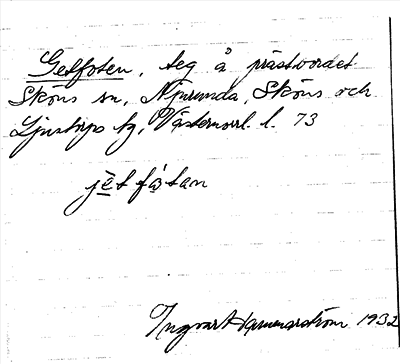 Getfoten, teg å prästbordet
Sköns sn, Njurunda, Sköns och
Ljustorps tg, Västernorrl. l. 73
jèt fátan
Ingvar Hammarström 1932